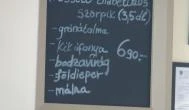 szörpik (3,5dl)
- gránátalma
- kék áfonya
- bodzavirág
- földieper
- málna
690,-